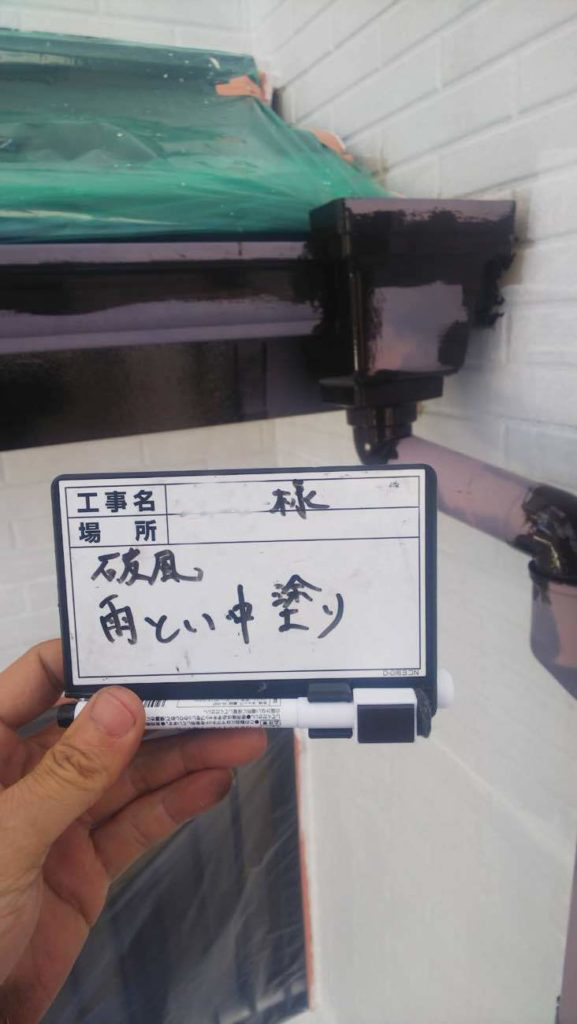 工事名 様
場所
破風
雨とい中塗り